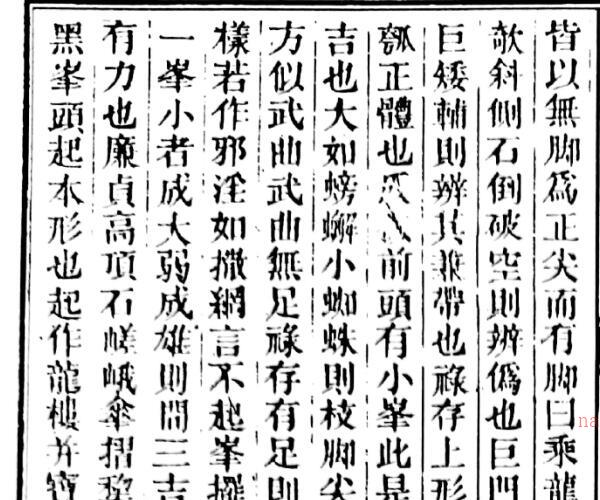 皆以無脚爲正尖而有脚曰乘龍
欹斜側石倒破空則辨僞也巨門
巨矮輔則辨其兼帶也祿存上形
瓠正體也前頭有小峯此是
吉也大如螃蠏小蜘蛛則枝脚尖
方似武曲武曲無足祿存有足則
樣若作邪淫如撒網言不起峯攞
一峯小者成大弱成雄則間三吉
有力也廉貞高項石嵯峨傘摺犂
黑峯頭起本形也起作龍樓并寶